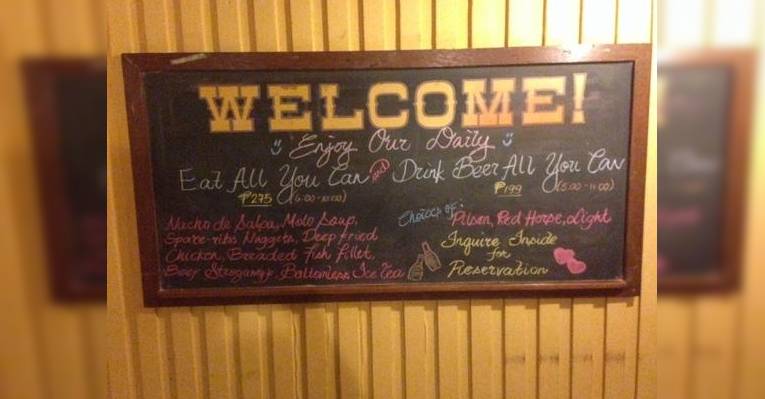 WELCOME!
Enjoy Our Daily
Eat All You Can and Drink Beer All You Can
₱275 (6:00-10:00)
₱199 (5:00-11:00)
Nacho de Salsa, Molo Soup,
Spare-ribs Nuggets, Deep Fried
Chicken, Breaded Fish Fillet,
Beef Stroganoff, Bottomless Ice Tea
Choices of: Pilsen, Red Horse, Light
Inquire Inside
for
Reservation